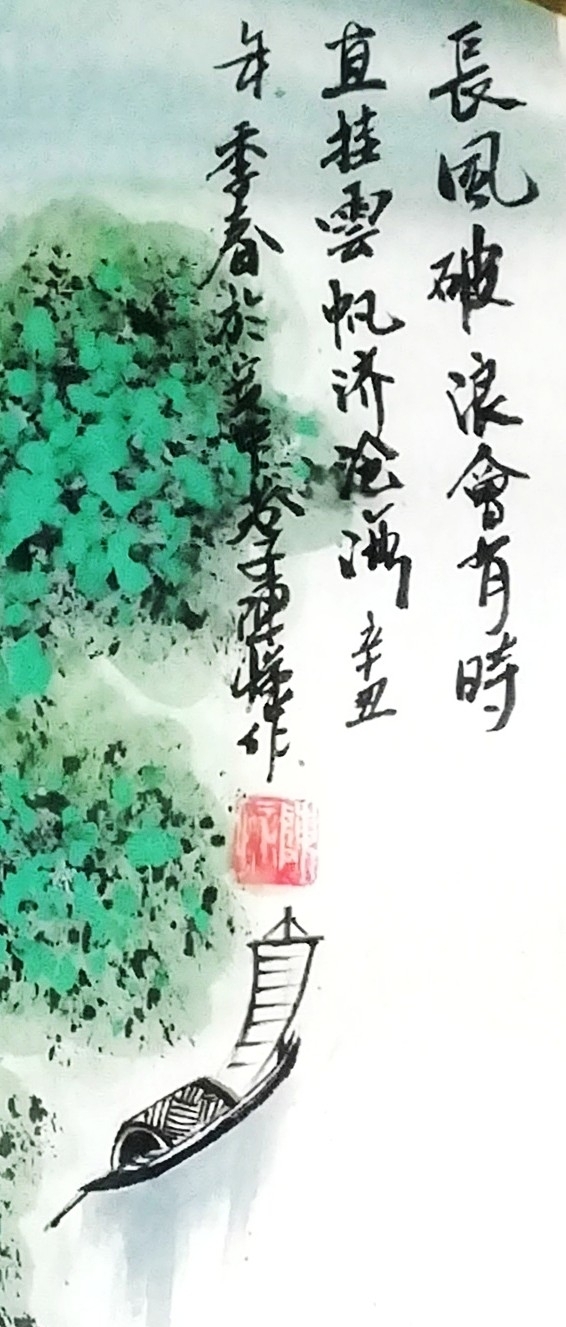 長風破浪會有時
直挂雲帆济沧海 辛丑
年季春於 陳 作